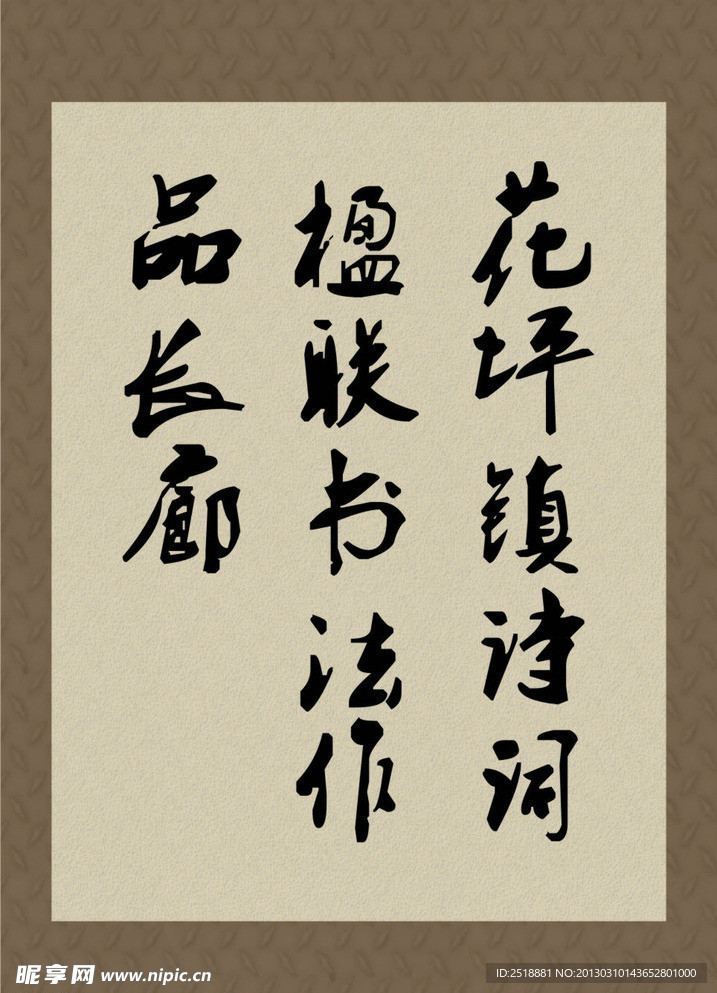 花坪镇诗词
楹联书法作
品长廊
昵享网 www.nipic.cn
ID:2518881 NO:20130310143652801000